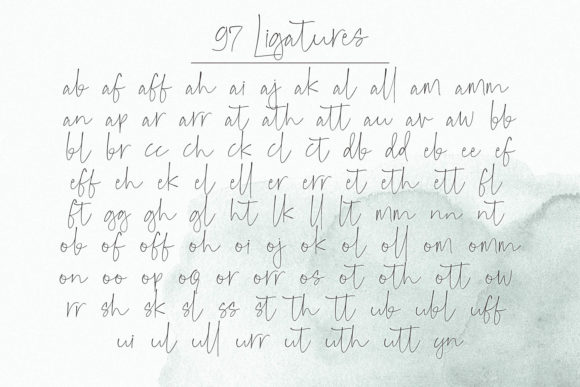 97 Ligatures
ab af aff ah ai aj ak al all am amm
an ap ar arr at ath att au av aw bb
bl br cc ch ck cl ct db dd eb ee ef
eff eh ek el ell er err et eth ett fl
ft gg gh gl ht lk ll lt mm nn nt
ob of off oh oi oj ok ol oll om omm
on oo op oq or orr os ot oth ott ow
rr sh sk sl ss st Th TT ub ubl uff
ui ul ull urr ut uth utt yn